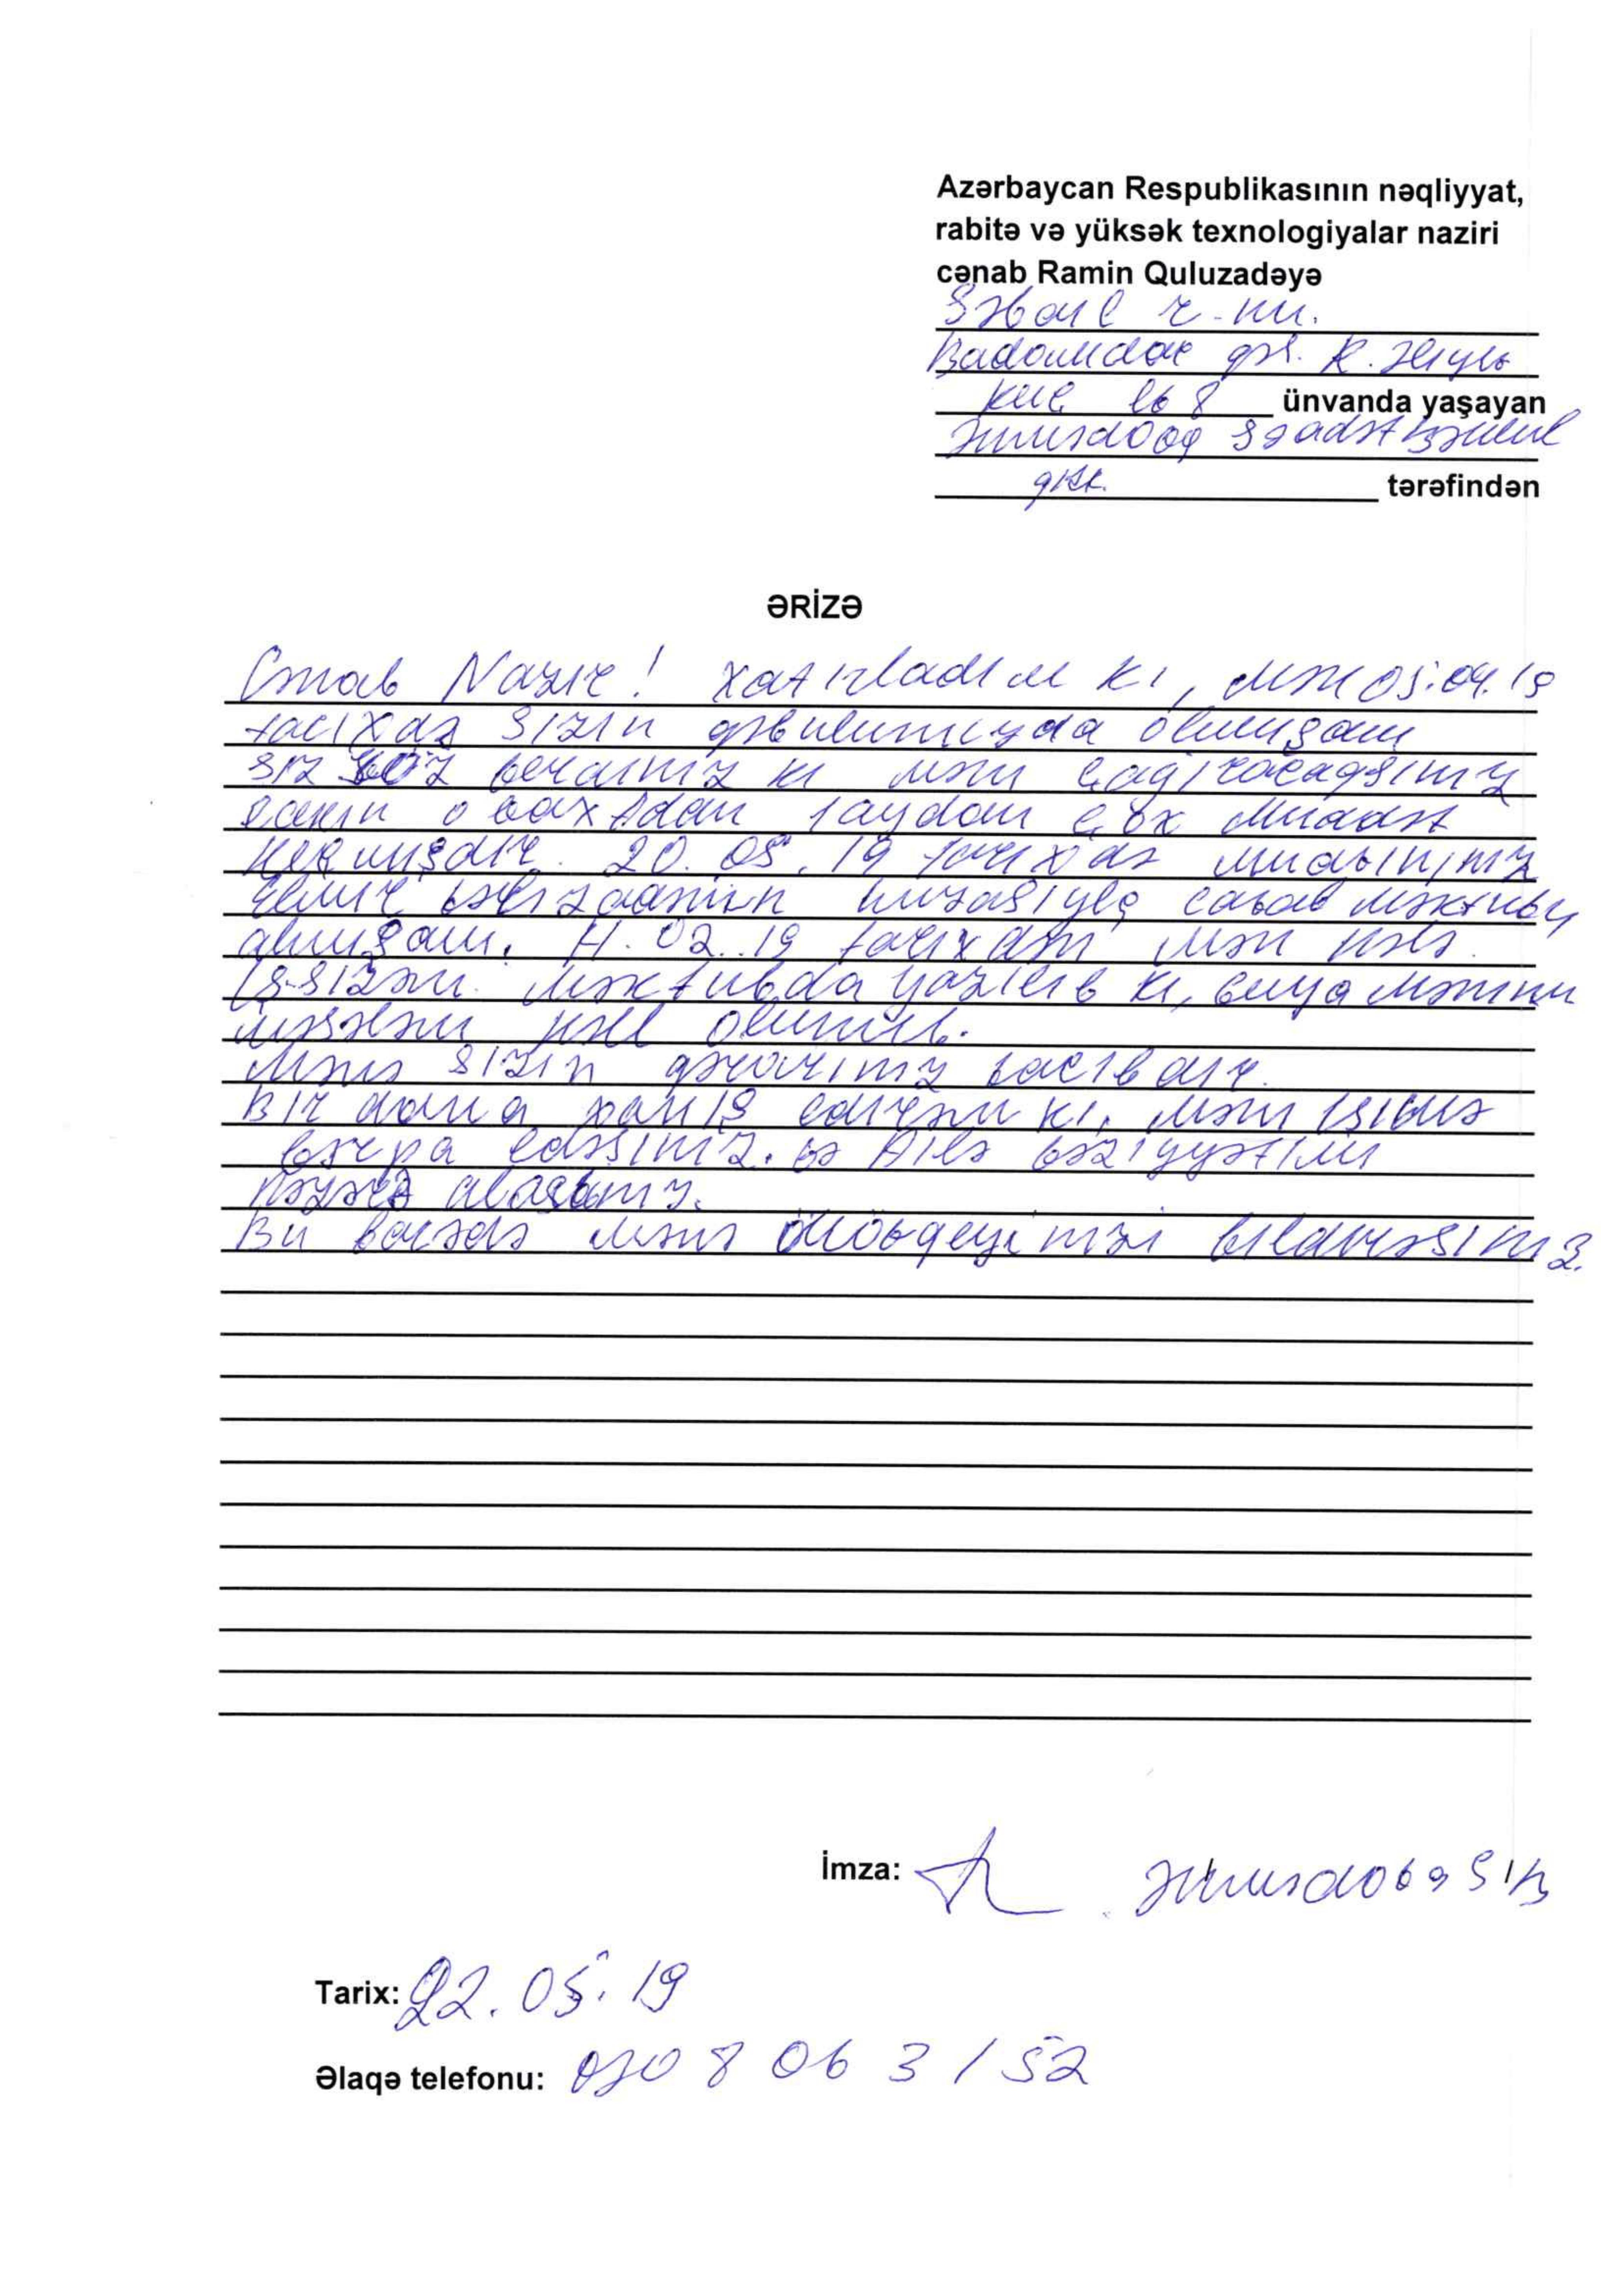 Azərbaycan Respublikasının nəqliyyat,
rabitə və yüksək texnologiyalar naziri
cənab Ramin Quluzadəyə
Səbail r-nu.
Badamdar qəs.
küç ev 8 ünvanda yaşayan
Səadət
qızı. tərəfindən
ƏRİZƏ
Cənab Nazir! Xatırladım ki, mən 05.04.19
tarixdə Sizin qəbulunuzda olmuşam
siz söz verdiniz ki məni çağıracaqsınız
Lakin o vaxtdan 1 aydan çox müddət
keçmişdir. 20.05.19 tarixdə müavininiz
Elmir Vəlizadənin imzasıyla cavab məktubu
almışam. 11.02.19 tarixdən mən hələ
işsizəm. Məktubda yazılıb ki, guya mənim
məsələm həll olunub.
Mənə sizin qərarınız vacibdir.
Bir daha xahiş edirəm ki, məni işimə
bərpa edəsiniz. və Ailə vəziyyətimi
nəzərə alasınız.
Bu barədə mənə mövqeyinizi bildirəsiniz.
İmza:
Tarix: 22.05.19
Əlaqə telefonu: 070 806 31 52